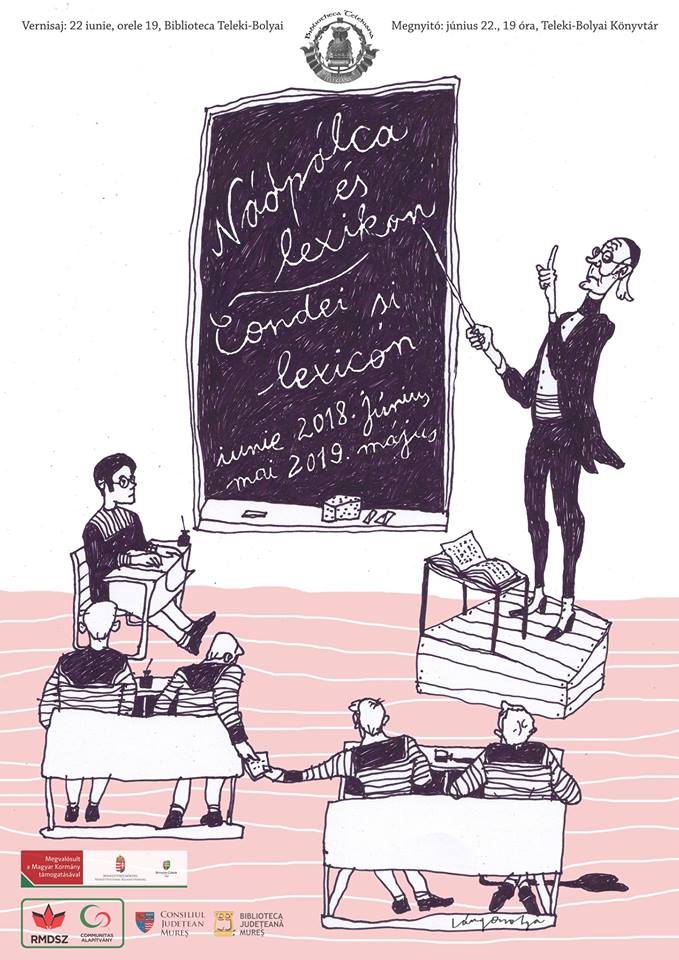 Vernisaj: 22 iunie, orele 19, Biblioteca Teleki-Bolyai
Megnyitó: június 22., 19 óra, Teleki-Bolyai Könyvtár
Bibliotheca Telekiana
Nádpálca
és
lexikon
Condei si
lexicón
iunie 2018. június
mai 2019. május
Megvalósult
a Magyar Kormány
támogatásával
RMDSZ
COMMUNITAS
ALAPÍTVÁNY
CONSILIUL
JUDEȚEAN
MUREȘ
BIBLIOTECA
JUDEȚEANĂ
MUREȘ